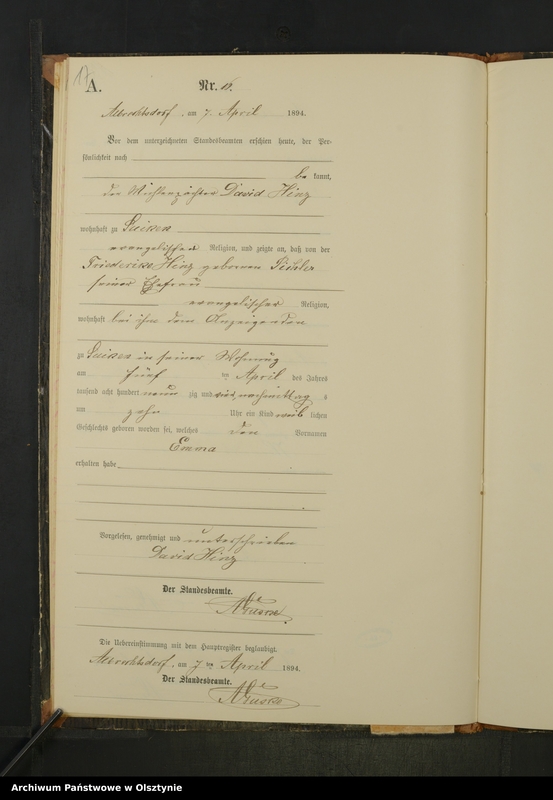 17
A.
Nr. 16.
Albrechtsdorf, am 7. April 1894.
Vor dem unterzeichneten Standesbeamten erschien heute, der Per-
sönlichkeit nach
be kannt,
der David Hinz
wohnhaft zu
evangelischer Religion, und zeigte an, daß von der
Friederike Hinz geborenen
seiner Ehefrau
evangelischer Religion,
wohnhaft bei ihm dem Anzeigenden
zu in seiner Wohnung
am fünf ten April des Jahres
tausend acht hundert neun zig und vier nachmittag s
um zehn Uhr ein Kind weib lichen
Geschlechts geboren worden sei, welches den Vornamen
Emma
erhalten habe
Vorgelesen, genehmigt und unterschrieben
David Hinz
Der Standesbeamte.
Die Uebereinstimmung mit dem Hauptregister beglaubigt.
Albrechtsdorf, am 7 ten April 1894.
Der Standesbeamte.
Archiwum Państwowe w Olsztynie